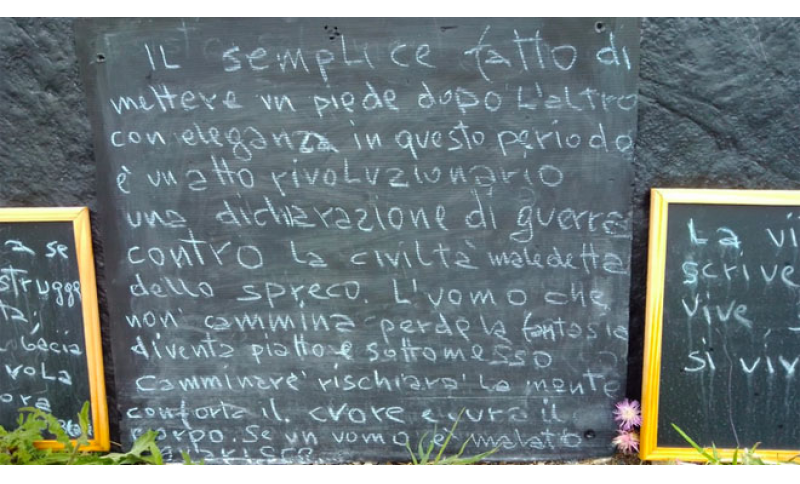 IL semplice fatto di
mettere un piede dopo L'altro
con eleganza in questo periodo
è un atto rivoluzionario
una dicharazione di guerra
contro la civiltà maledetta
dello spreco. L'uomo che
non cammina perde la fantasia
diventa piatto e sottomesso
camminare rischiara la mente
conforta il cuore e cura il
corpo. Se un uomo è malato
guarisce
a se
strugge
ta,
bacia
vola
ora
La vi
scrive
vive
si viv